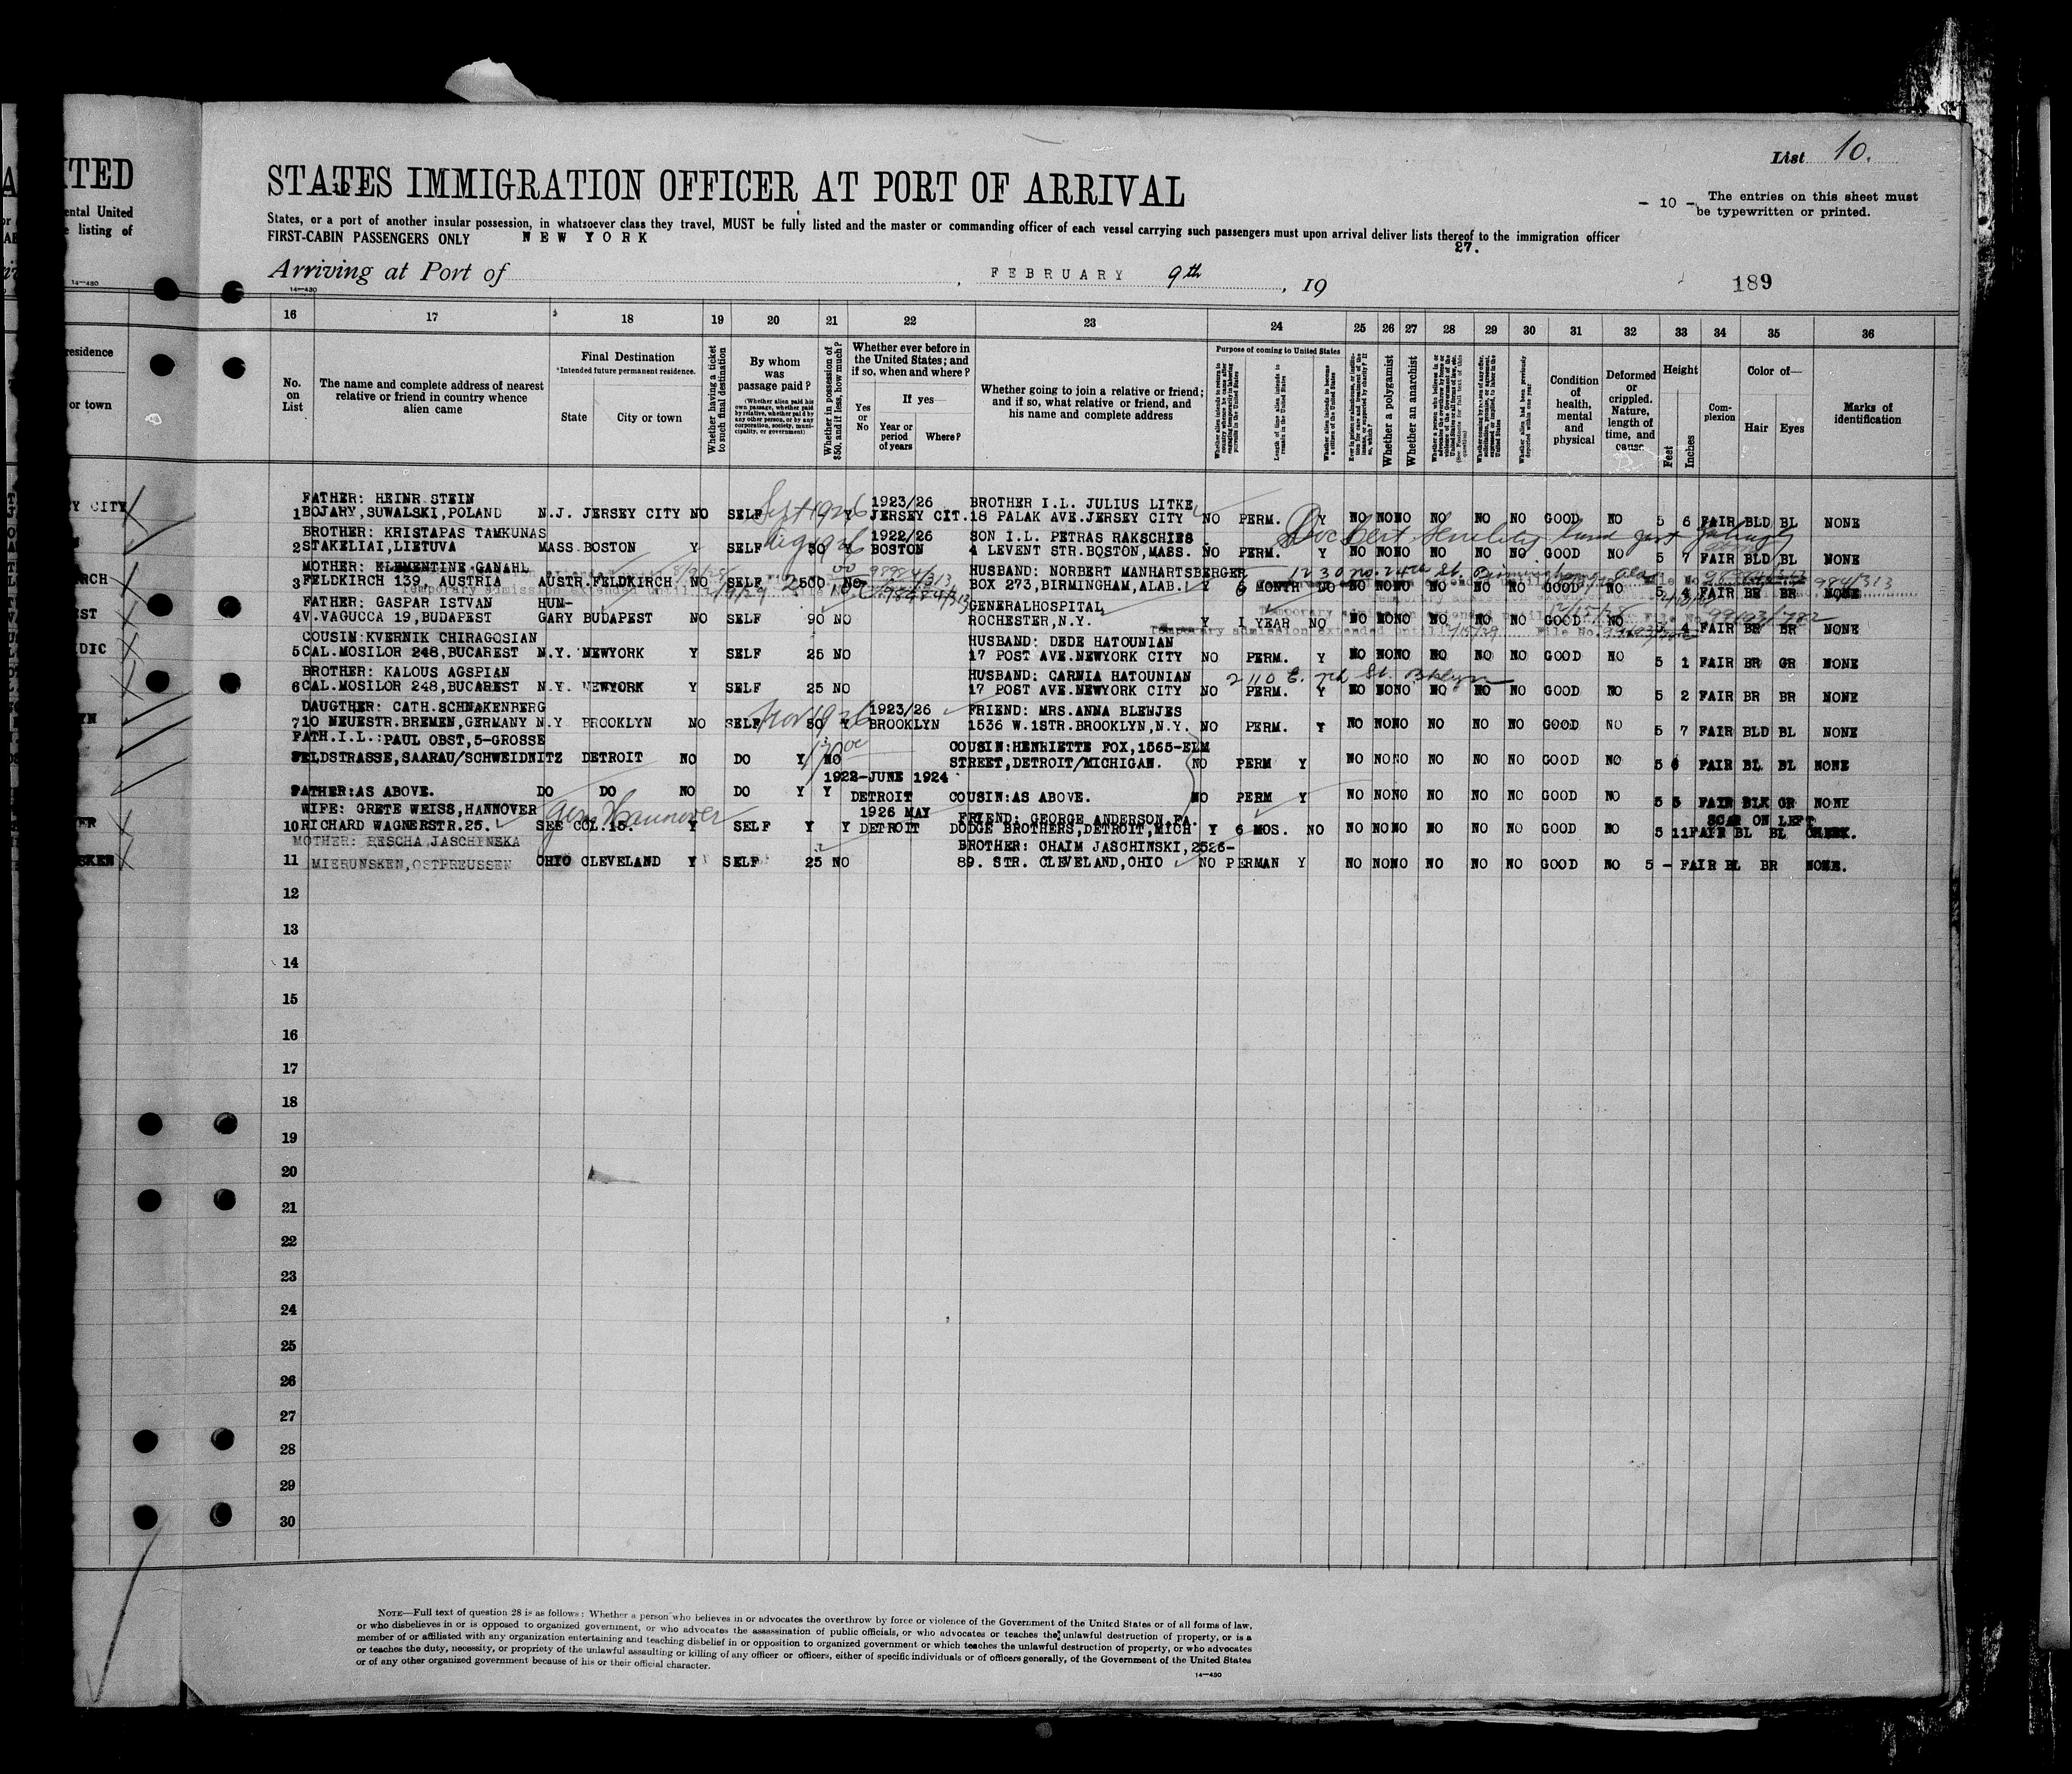 List 10.
STATES IMMIGRATION OFFICER AT PORT OF ARRIVAL
- 10 -
The entries on this sheet must
be typewritten or printed.
States, or a port of another insular possession, in whatsoever class they travel, MUST be fully listed and the master or commanding officer of each vessel carrying such passengers must upon arrival deliver lists thereof to the immigration officer
FIRST-CABIN PASSENGERS ONLY NEW YORK
27.
Arriving at Port of , FEBRUARY 9th , 19
189
14-430
16 17 18 19 20 21 22 23 24 25 26 27 28 29 30 31 32 33 34 35 36
No. on List
The name and complete address of nearest relative or friend in country whence alien came
Final Destination
*Intended future permanent residence.
State City or town
Whether having a ticket to such final destination
By whom was passage paid?
(Whether alien paid his own passage, whether paid by relative, whether paid by any other person, or by any corporation, society, municipality, or government)
Whether in possession of $50, and if less, how much?
Whether ever before in the United States; and if so, when and where?
Yes or No
If yes—
Year or period of years
Where?
Whether going to join a relative or friend; and if so, what relative or friend, and his name and complete address
Purpose of coming to United States
Whether a polygamist
Whether an anarchist
Condition of health, mental and physical
Deformed or crippled. Nature, length of time, and cause
Height
Feet Inches
Complexion
Color of—
Hair Eyes
Marks of identification
FATHER: HEINR STEIN Sept 1926 1923/26 BROTHER I.L. JULIUS LITKE
1 BOJARY,SUWALSKI,POLAND N.J. JERSEY CITY NO SELF Y JERSEY CIT. 18 PALAK AVE.JERSEY CITY NO PERM. Y NO NO NO NO NO NO GOOD NO 5 6 FAIR BLD BL NONE
BROTHER: KRISTAPAS TAMKUNAS Aug 1926 1922/26 SON I.L. PETRAS RAKSCHIES
2 STAKELIAI,LIETUVA MASS. BOSTON Y SELF 50 Y BOSTON 4 LEVENT STR.BOSTON,MASS. NO PERM. Y NO NO NO NO NO NO GOOD NO 5 7 FAIR BLD BL NONE
MOTHER: KLEMENTINE GANAHL HUSBAND: NORBERT MANHARTSBERGER 1230 No. 24th St. Birmingham Ala
3 FELDKIRCH 139, AUSTRIA AUSTR. FELDKIRCH NO SELF 2500 NO BOX 273,BIRMINGHAM,ALAB. Y 6 MONTH NO NO NO NO NO NO NO GOOD NO 5 4 FAIR BR BR NONE
Temporary admission extended until
FATHER: GASPAR ISTVAN HUN- GENERALHOSPITAL
4 V.VAGUCCA 19,BUDAPEST GARY BUDAPEST NO SELF 90 NO ROCHESTER,N.Y. Y 1 YEAR NO NO NO NO NO NO NO GOOD NO 5 4 FAIR BR BR NONE
Temporary admission extended until File No.
COUSIN:KVERNIK CHIRAGOSIAN HUSBAND: DEDE HATOUNIAN
5 CAL.MOSILOR 248,BUCAREST N.Y. NEWYORK Y SELF 25 NO 17 POST AVE.NEWYORK CITY NO PERM. Y NO NO NO NO NO NO GOOD NO 5 1 FAIR BR GR NONE
BROTHER: KALOUS AGSPIAN HUSBAND: CARNIA HATOUNIAN 2110 E. 7th St. Bklyn
6 CAL.MOSILOR 248,BUCAREST N.Y. NEWYORK Y SELF 25 NO 17 POST AVE.NEWYORK CITY NO PERM. Y NO NO NO NO NO NO GOOD NO 5 2 FAIR BR BR NONE
DAUGTHER: CATH.SCHNAKENBERG Nov 1926 1923/26 FRIEND: MRS.ANNA BLEWJES
7 10 NEUESTR.BREMEN,GERMANY N.Y BROOKLYN NO SELF 50 Y BROOKLYN 1536 W.1STR.BROOKLYN,N.Y. NO PERM. Y NO NO NO NO NO NO GOOD NO 5 7 FAIR BLD BL NONE
FATH.I.L.:PAUL OBST,5-GROSSE COUSIN:HENRIETTE FOX,1565-ELM
FELDSTRASSE,SAARAU/SCHWEIDNITZ DETROIT NO DO Y NO STREET,DETROIT/MICHIGAN. NO PERM Y NO NO NO NO NO NO GOOD NO 5 6 FAIR BL BL NONE
1922-JUNE 1924
FATHER:AS ABOVE. DO DO NO DO Y Y DETROIT COUSIN:AS ABOVE. NO PERM Y NO NO NO NO NO NO GOOD NO 5 5 FAIR BLK GR NONE
WIFE: GRETE WEISS,HANNOVER Germ Hannover 1926 MAY FRIEND: GEORGE ANDERSON,FA. SCAR ON LEFT
10 RICHARD WAGNERSTR.25. SEE COL.15. Y SELF Y Y DETROIT DODGE BROTHERS,DETROIT,MICH Y 6 MOS. NO NO NO NO NO NO NO GOOD NO 5 11 FAIR BL BL CHEEK.
MOTHER: RESCHA JASCHINSKA BROTHER: CHAIM JASCHINSKI,2526-
11 MIERUNSKEN,OSTPREUSSEN OHIO CLEVELAND Y SELF 25 NO 89. STR. CLEVELAND,OHIO NO PERMAN Y NO NO NO NO NO NO GOOD NO 5 - FAIR BL BR NONE.
12
13
14
15
16
17
18
19
20
21
22
23
24
25
26
27
28
29
30
NOTE—Full text of question 28 is as follows: Whether a person who believes in or advocates the overthrow by force or violence of the Government of the United States or of all forms of law,
or who disbelieves in or is opposed to organized government, or who advocates the assassination of public officials, or who advocates or teaches the unlawful destruction of property, or is a
member of or affiliated with any organization entertaining and teaching disbelief in or opposition to organized government or which teaches the unlawful destruction of property, or who advocates
or teaches the duty, necessity, or propriety of the unlawful assaulting or killing of any officer or officers, either of specific individuals or of officers generally, of the Government of the United States
or of any other organized government because of his or their official character.
14-430